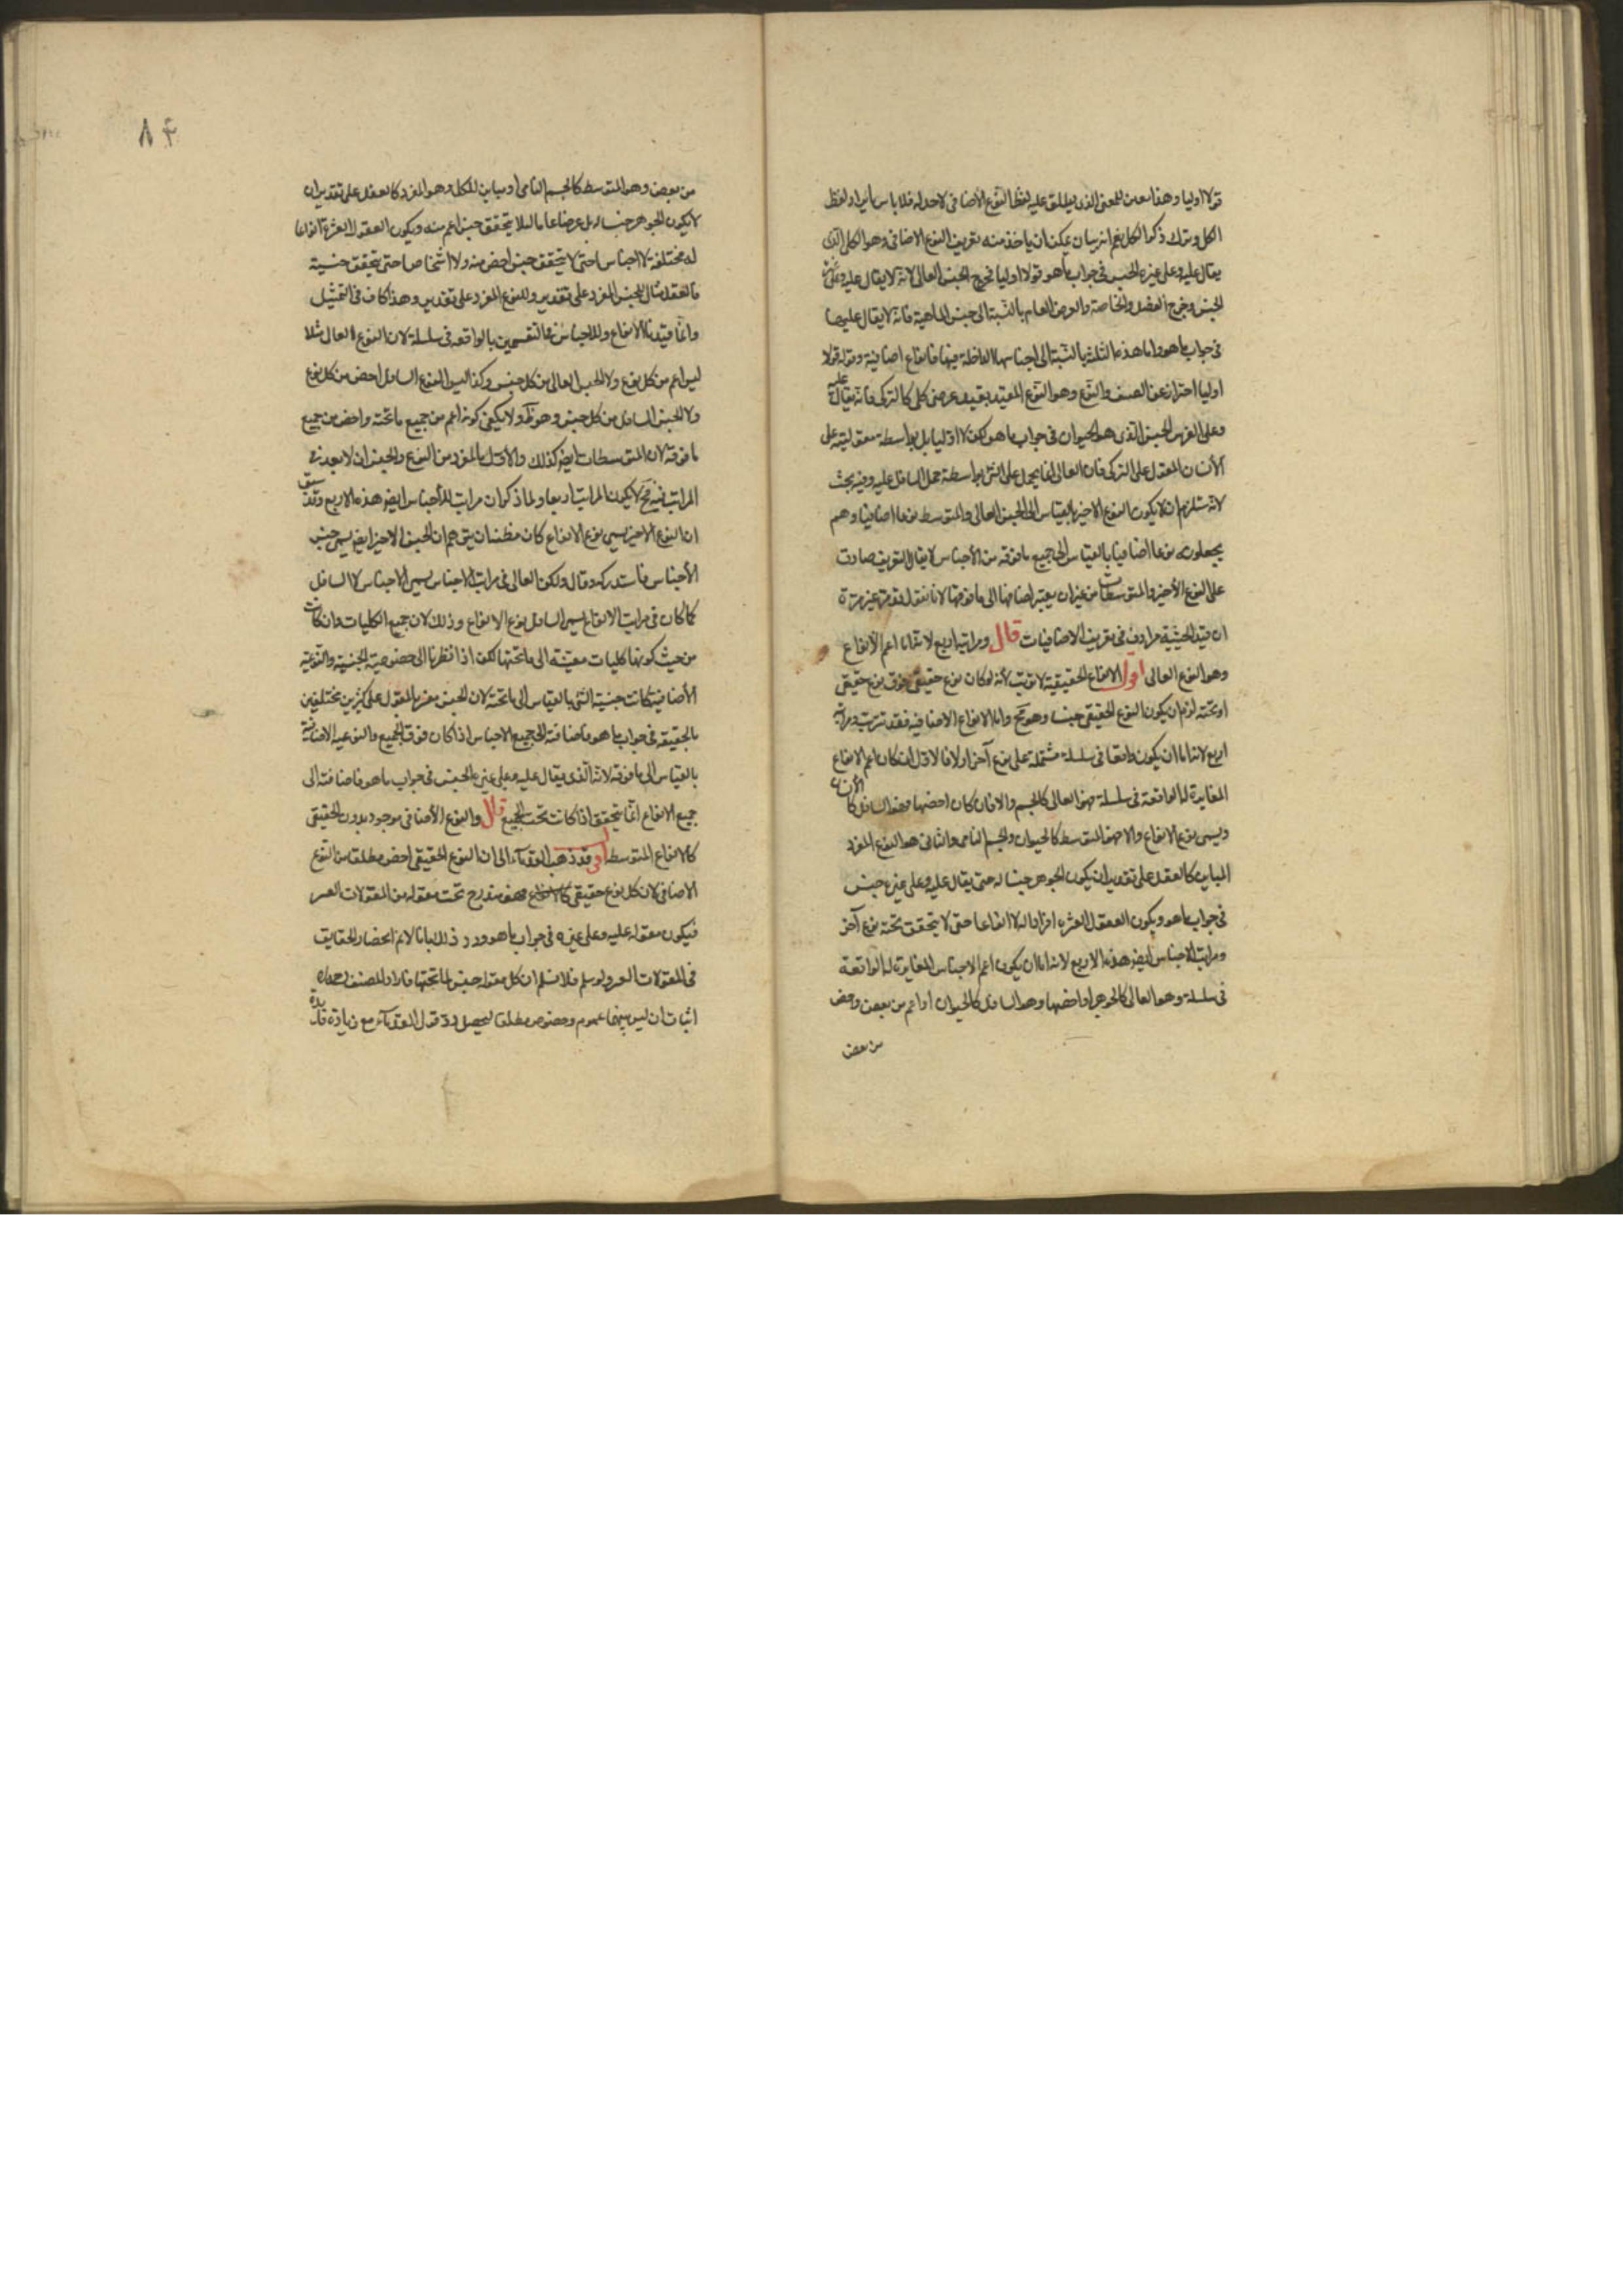 قولا اوليا وهذا معنى للمعنى الذى يطلق عليه لفظ النوع الأضافى لا حد له فلا باس بايراد لفظ
الكل وترك ذكر الكل نعم انه بيان يمكن ان ياخذ منه تعريف النوع الاضافى وهو الكلى الذى
يقال عليه وعلى غيره الجنس فى جواب ما هو قولا اوليا فخرج الجنس العالى لانه لا يقال عليه وعلى غيره
الجنس وخرج الفصل والخاصة والعرض العام بالنسبة الى جنس الماهية فانه لا يقال عليها
فى جواب ما هو واما هذه الثلثة بالنسبة الى اجناسها الداخلة فيها فانواع اضافية وقوله قولا
اوليا احتراز عن الصنف والنوع وهو النوع المقيد بقيد عرضى كلى كالتركى فانه يقال عليه
وعلى الفرس الجنس الذى هو الحيوان فى جواب ما هو لكن لا اوليا بل بواسطة مقوليته على
الأنسان المقول على التركى فان العالى انما يحمل على الشئ بواسطة حمل السافل عليه وفيه بحث
لانه يستلزم ان لا يكون النوع الاخير بالقياس الى الجنس العالى والمتوسط نوعا اضافيا وهم
يجعلونه نوعا اضافيا بالقياس الى جميع ما فوقه من الأجناس لا يقال التعريف صادق
على النوع الأخير والمتوسطات من غير ان يعتبر اضافها الى ما فوقها لانا نقول قد مر غير مرة
ان قيد الحيثية مراد فى تعريف الاضافيات قال ومراتبه اربع لانه اما اعم الأنواع
وهو النوع العالى اقول الانواع الحقيقية لا ترتب لأنه لو كان نوع حقيقى فوق نوع حقيقى
او تحته لزم ان يكون النوع الحقيقى جنسا وهو مح واما الانواع الاضافية فقد تترتب ومراتبه
اربع لانه اما ان يكون واقعا فى سلسلة مشتملة على نوع آخر اولا فالاول ان كان اعم الانواع
المغايرة له الواقعة فى سلسلة فهو العالى كالجسم والا فان كان اخصها فهو السافل كالأنسان
ويسمى نوع الانواع والا فهو المتوسط كالحيوان والجسم النامى والثانى هو النوع المفرد
المباين كالعقل على تقدير ان يكون الجوهر جنسا له حتى يقال عليه وعلى غيره جنس
فى جواب ما هو ويكون العقول العشره افراد له لا انواعا حتى لا يتحقق تحته نوع آخر
ومراتب الاجناس ايضه هذه الاربع لانه اما ان يكون اعم الاجناس المغايرة له الواقعة
فى سلسلة وهو العالى كالجوهر او اخصها وهو السافل كالحيوان او اعم من بعض واخص
من بعض
٨٤
من بعض وهو المتوسط كالجسم النامى او مباين للكل وهو المفرد كالعقل على تقدير ان
لا يكون الجوهر جنسا له بل عرضا عاما لئلا يتحقق جنس اعم منه ويكون العقول العشرة انواعا
له مختلفة لا اجناسا حتى لا يتحقق جنس اخص منه ولا اشخاصا حتى يتحقق جنسية
فالعقل مثال للجنس المفرد على تقدير وللنوع المفرد على تقدير وهذا كاف فى التمثيل
وانما قيدنا الانواع والاجناس فى التقسيمين بالواقعه فى سلسلة لان النوع العالى مثلا
ليس اعم من كل نوع ولا الجنس العالى من كل جنس وكذا ليس النوع السافل اخص من كل نوع
ولا الجنس السافل من كل جنس وهو ظ ولا يكفى كونه اعم من جميع ما تحته واخص من جميع
ما فوقه لان المتوسطات ايضه كذلك والاول بالمفرد من النوع والجنس ان لا يعد فى
المراتب فيه فح لا يكون المراتب اربعا ولما ذكر ان مراتب الأجناس ايضه هذه الاربع وقد سبق
ان النوع الاخير يسمى نوع الانواع كان مظنة ان يتوهم ان الجنس الاخير ايضه يسمى جنس
الأجناس فاستدركه وقال ولكن العالى فى مراتب الاجناس يسمى الاجناس لا السافل
كما كان فى مراتب الانواع يسمى السافل نوع الانواع وذلك لان جميع الكليات وان كانت
من حيث كونها كليات مقيسة الى ما تحتها لكن اذا نظرنا الى خصوصية الجنسية والنوعية
الأضافية كانت جنسية الشئ بالقياس الى ما تحته لان الجنس مفسر بالمقول على كثيرين مختلفين
بالحقيقه فى جواب ما هو فاضافته الى جميع الاجناس اذا كان فوق الجميع والنوعيه الاضافية
بالقياس الى ما فوقه لانه الذى يقال عليه وعلى غيره الجنس فى جواب ما هو فاضافته الى
جميع الانواع انما يتحقق اذا كانت تحت الجميع قال والنوع الأضافى موجود بدون الحقيقى
كالانواع المتوسطه اقول قد ذهب القدماء الى ان النوع الحقيقى اخص مطلقا من النوع
الاضافى لان كل نوع حقيقى فهو مندرج تحت مقوله من المقولات العشر
فيكون مقوله عليه وعلى غيره فى جواب ما هو ورد ذلك بانا لا نم انحصار الحقايق
فى المقولات العشر ولو سلم فلا نسلم ان كل مقوله جنس لما تحتها فاراد المصنف رحمه الله
اثبات ان ليس بينهما عموم وخصوص مطلقا ليحصل رد قول القدماء مع زيادة فائدة